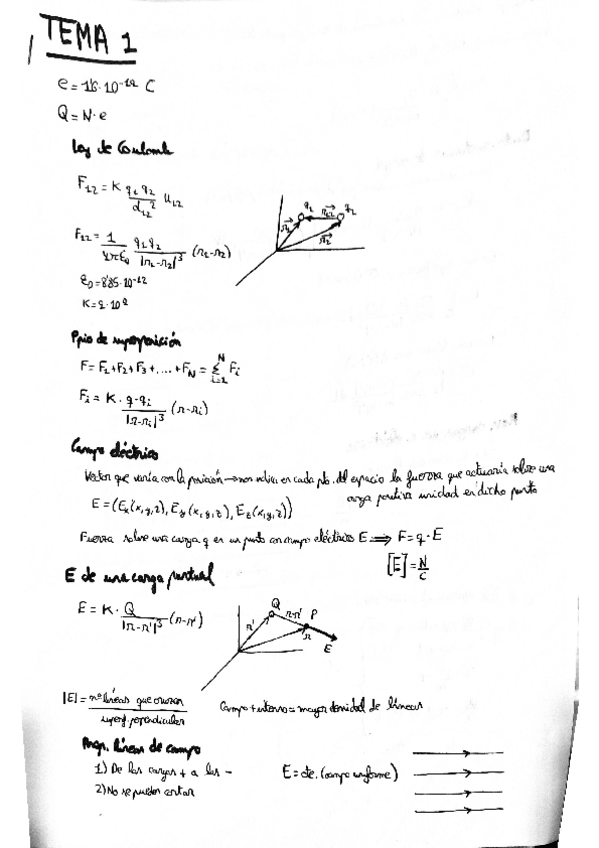 TEMA 1
e = 1'6·10⁻¹⁹ C
Q = N·e
Ley de Coulomb
F₁₂ = K q₁ q₂ / d₁₂² u₁₂
F₁₂ = 1 / 4πε₀ q₁ q₂ / |r₁-r₂|³ (r₁-r₂)
q₁ r₁₂ q₂
r₁ r₂
ε₀ = 8'85·10⁻¹²
K = 9·10⁹
Ppio de superposición
F = F₁ + F₂ + F₃ + .... + F_N = Σ Fᵢ
Fᵢ = K · q·qᵢ / |r-rᵢ|³ (r-rᵢ)
Campo eléctrico
Vector que varía con la posición → nos indica en cada pto. del espacio la fuerza que actuaría sobre una
carga positiva unidad en dicho punto
E = (Eₓ(x,y,z), E_y(x,y,z), E_z(x,y,z))
Fuerza sobre una carga q en un punto con campo eléctrico E ⟹ F = q·E
[E] = N/C
E de una carga puntual
E = K · Q / |r-r'|³ (r-r')
Q r-r' P
r' r E
|E| = nº líneas que cruzan / superf. perpendicular
Campo + intenso = mayor densidad de líneas
líneas de campo
1) De las cargas + a las -
E = cte. (campo uniforme)
2) No se pueden cortar